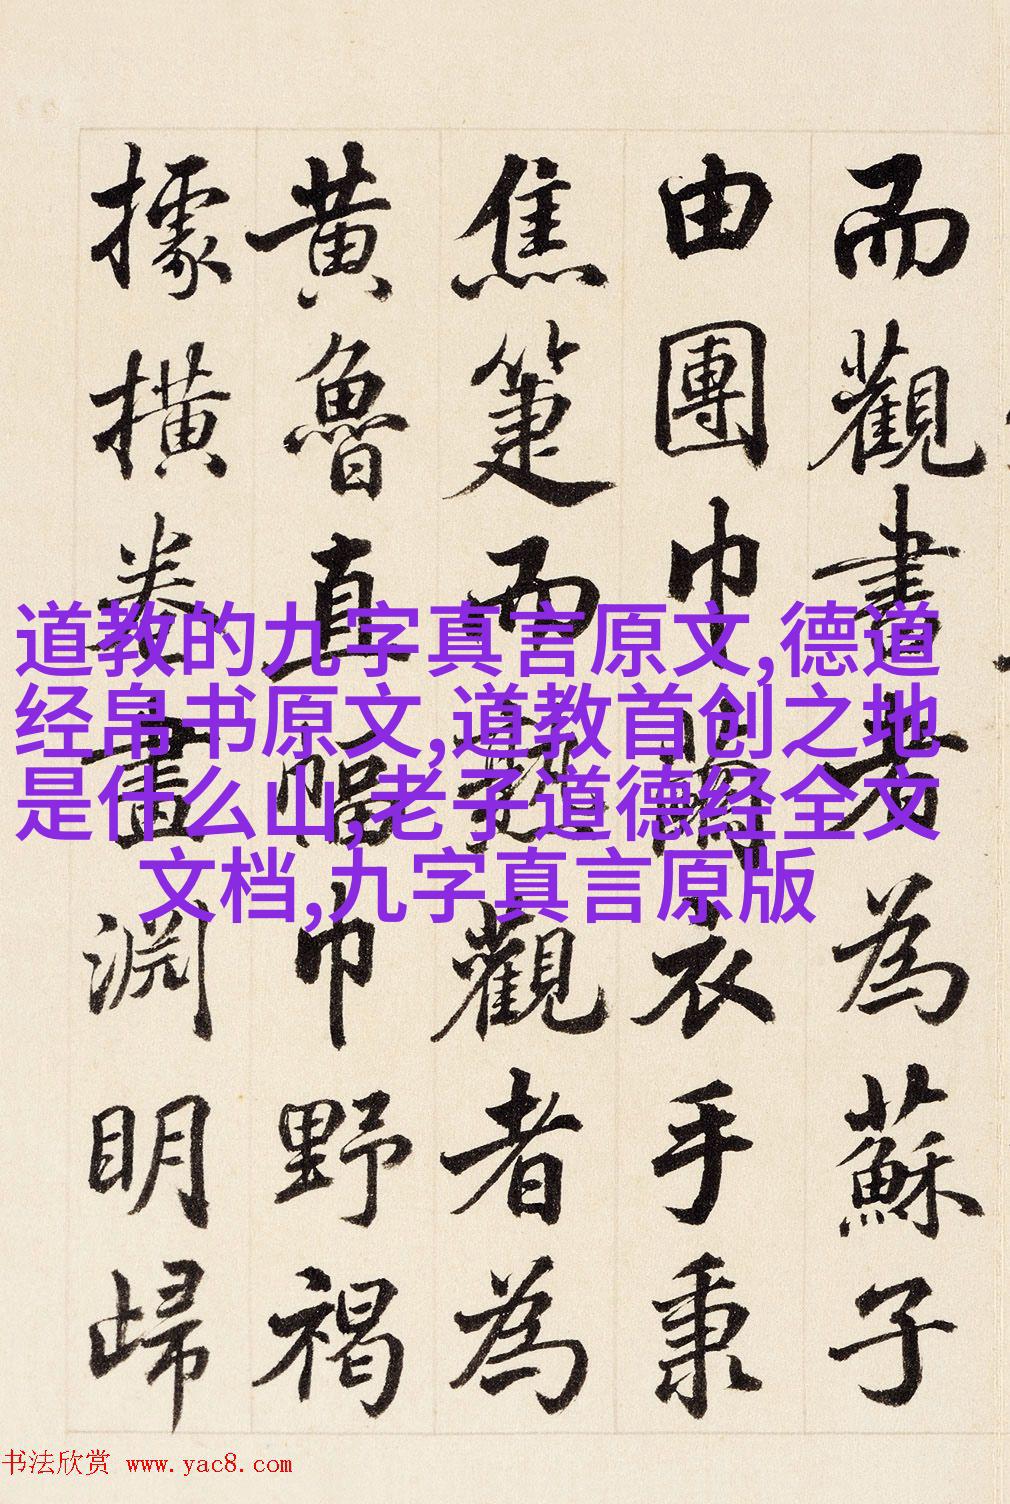 而觀書者為蘇子
由團巾繭衣手秉
焦箑而熟觀者為
黃魯直幅巾野褐
據橫卷畫淵明歸
道教的九字真言原文,德道
经帛书原文,道教首创之地
是什么山,老子道德经全文
文档,九字真言原版
书法欣赏 www.yac8.com